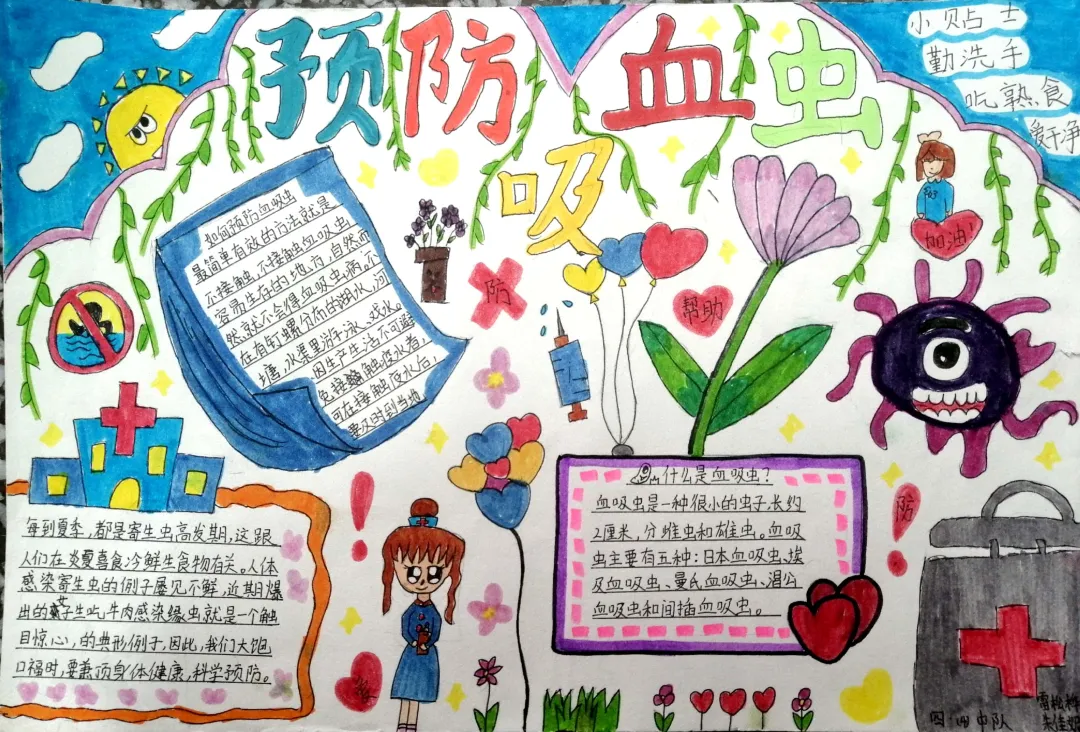 预防血虫
吸
小贴士
勤洗手
吃熟食
爱干净
如何预防血吸虫
最简单有效的方法就是
不接触,不接触血吸虫
容易生存的地方,自然而
然就不会得血吸虫病。不
在有钉螺分布的湖水、河
塘、水渠里游泳、戏水。
因生产生活不可避
免接触疫水者,
可在接触疫水后,
要及时到当地
防
帮助
加油!
什么是血吸虫?
血吸虫是一种很小的虫子,长约
2厘米,分雌虫和雄虫。血吸
虫主要有五种:日本血吸虫、埃
及血吸虫、曼氏血吸虫、湄公
血吸虫和间插血吸虫。
每到夏季,都是寄生虫高发期,这跟
人们在炎夏喜食冷鲜生食物有关。人体
感染寄生虫的例子屡见不鲜,近期爆
出的女子生吃牛肉感染绦虫就是一个触
目惊心,的典形例子,因此,我们大饱
口福时,要兼顶身体健康,科学预防。
防
四·四中队
雷松桦
朱佳